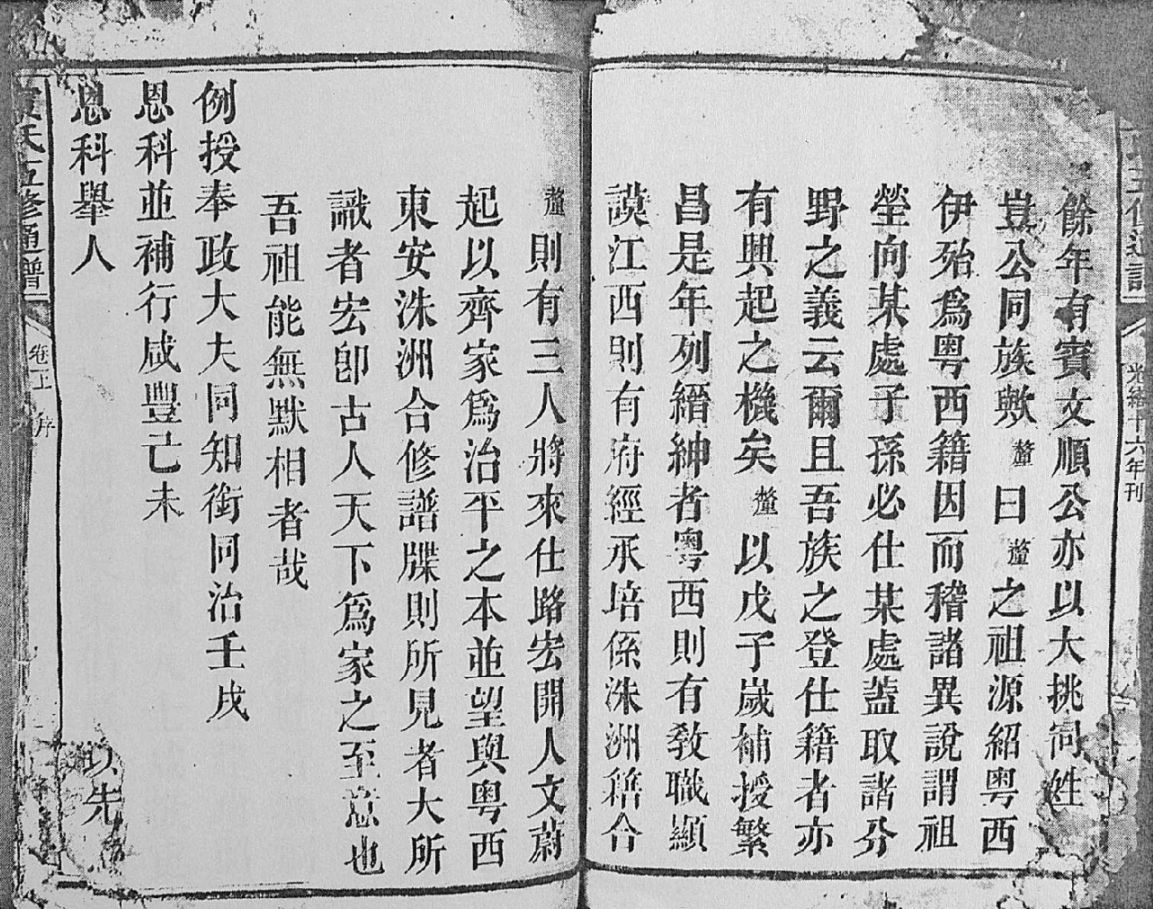 餘年有賓文順公亦以大挑同姓
豈公同族歟釐曰釐之祖源紹粤西
伊殆爲粤西籍因而稽諸異說謂祖
塋向某處子孫必仕某處蓋取諸分
野之義云爾且吾族之登仕籍者亦
有興起之機矣釐以戊子嵗補授繁
昌是年列縉紳者粤西則有敎職顯
謨江西則有府經承培係洙洲籍合
釐則有三人將來仕路宏開人文蔚
起以齊家爲治平之本並望與粤西
東安洙洲合修譜牒則所見者大所
識者宏卽古人天下爲家之至意也
吾祖能無默相者哉
例授奉政大夫同知銜同治壬戌
恩科並補行咸豐己未
恩科舉人
以先
光緒十六年刊
氏五修通譜
卷上
序